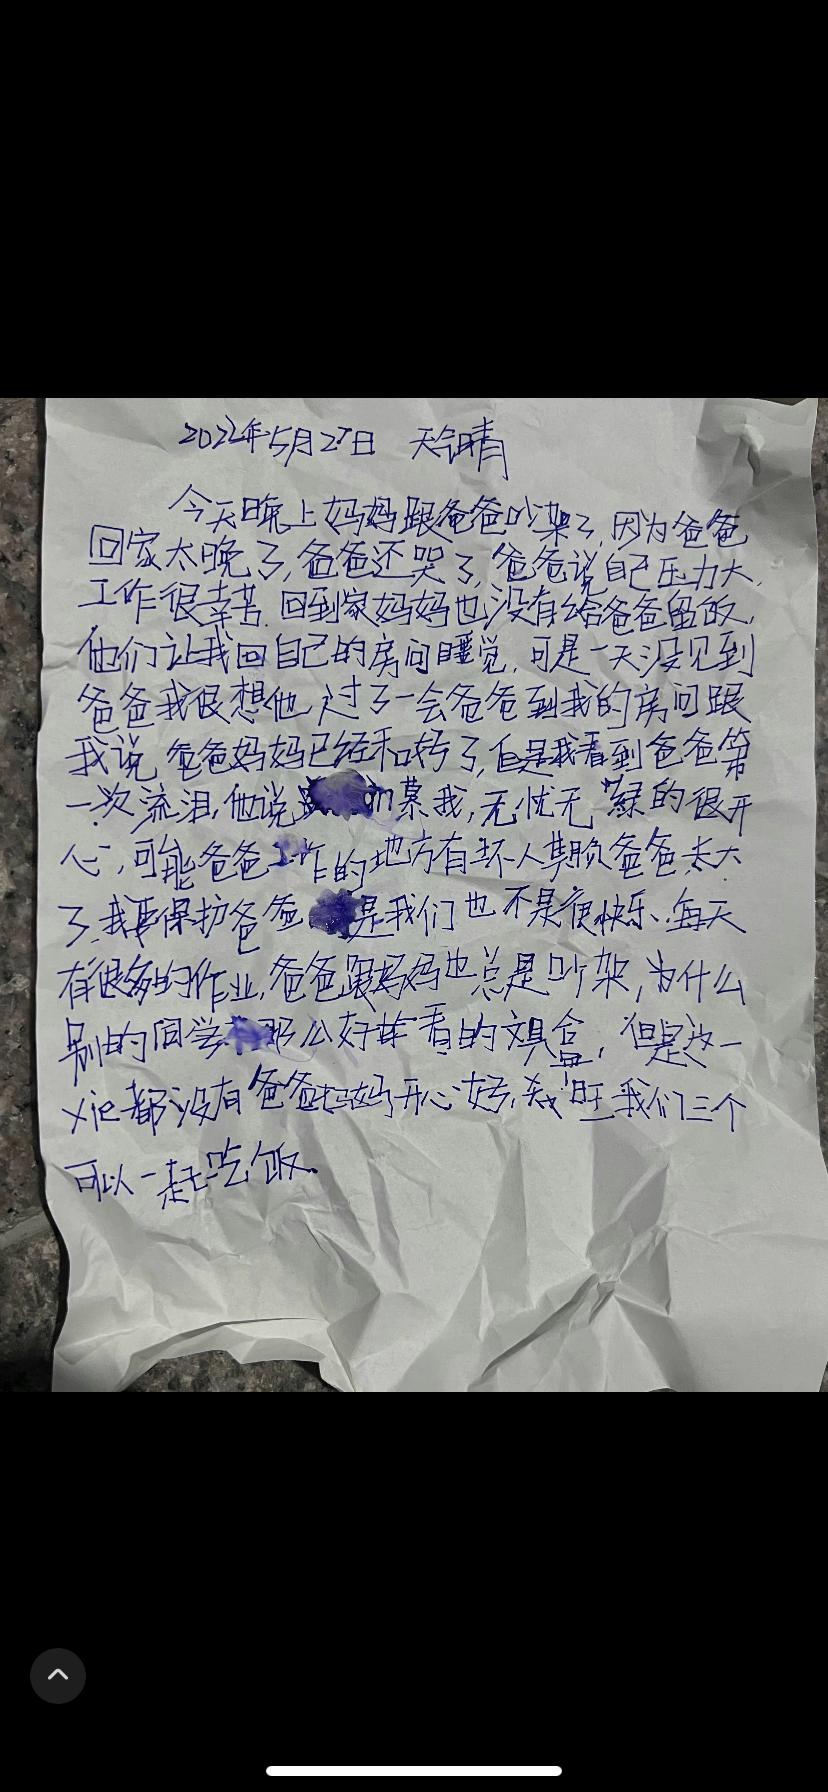 2022年5月27日 天气晴
今天晚上妈妈跟爸爸吵架了,因为爸爸
回家太晚了,爸爸还哭了,爸爸说自己压力大,
工作很幸苦.回到家妈妈也没有给爸爸留饭,
他们让我回自己的房间睡觉,可是一天没见到
爸爸我很想他,过了一会爸爸到我的房间跟
我说,爸爸妈妈已经和好了,但是我看到爸爸第
一次流泪,他说 慕我,无忧无 的很开
心,可能爸爸工作的地方有坏人 负爸爸,长大
了,我要保护爸爸 是我们也不是很快乐、每天
有很多的作业,爸爸跟妈妈也总是吵架,为什么
别的同学 那么好 看的文具盒,但是这一
xie都没有爸爸妈妈开心好, 我们三个
可以一起吃饭.